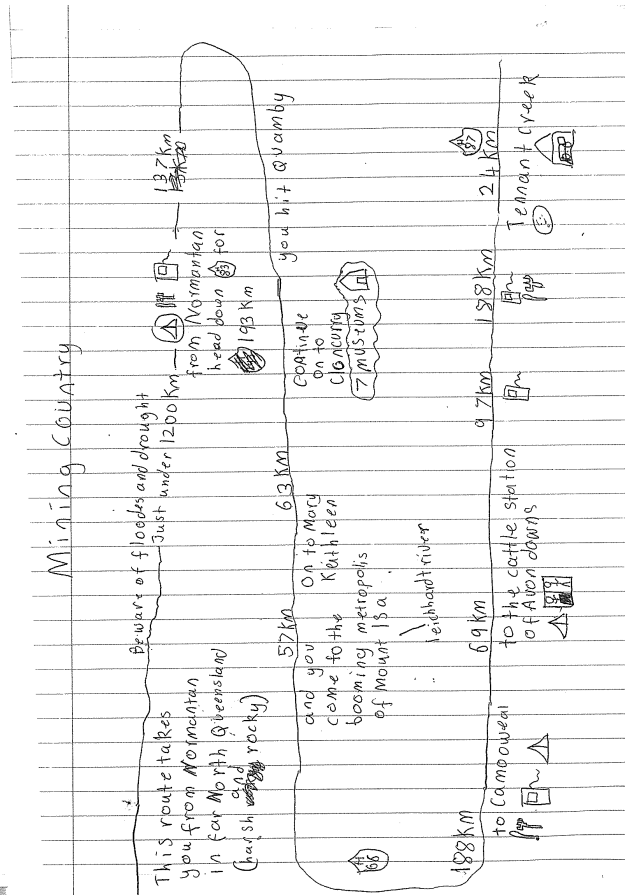 Mining Country
Beware of floodes and drought
Just under 1200Km
137Km
This route takes
you from Normantan
in far North Queensland
(harsh and rocky)
from Normantan
head down 83 for
193Km
you hit Quamby
63Km
continue
on to
Cloncurry
7 museums
57Km
on to Mary
Keithleen
and you
come to the
booming metropolis
of Mount Isa
leichhardt river
66
188Km
to Camooweal
69Km
to the cattle station
of Avon downs
97Km
188Km
87
24Km
Tennant Creek